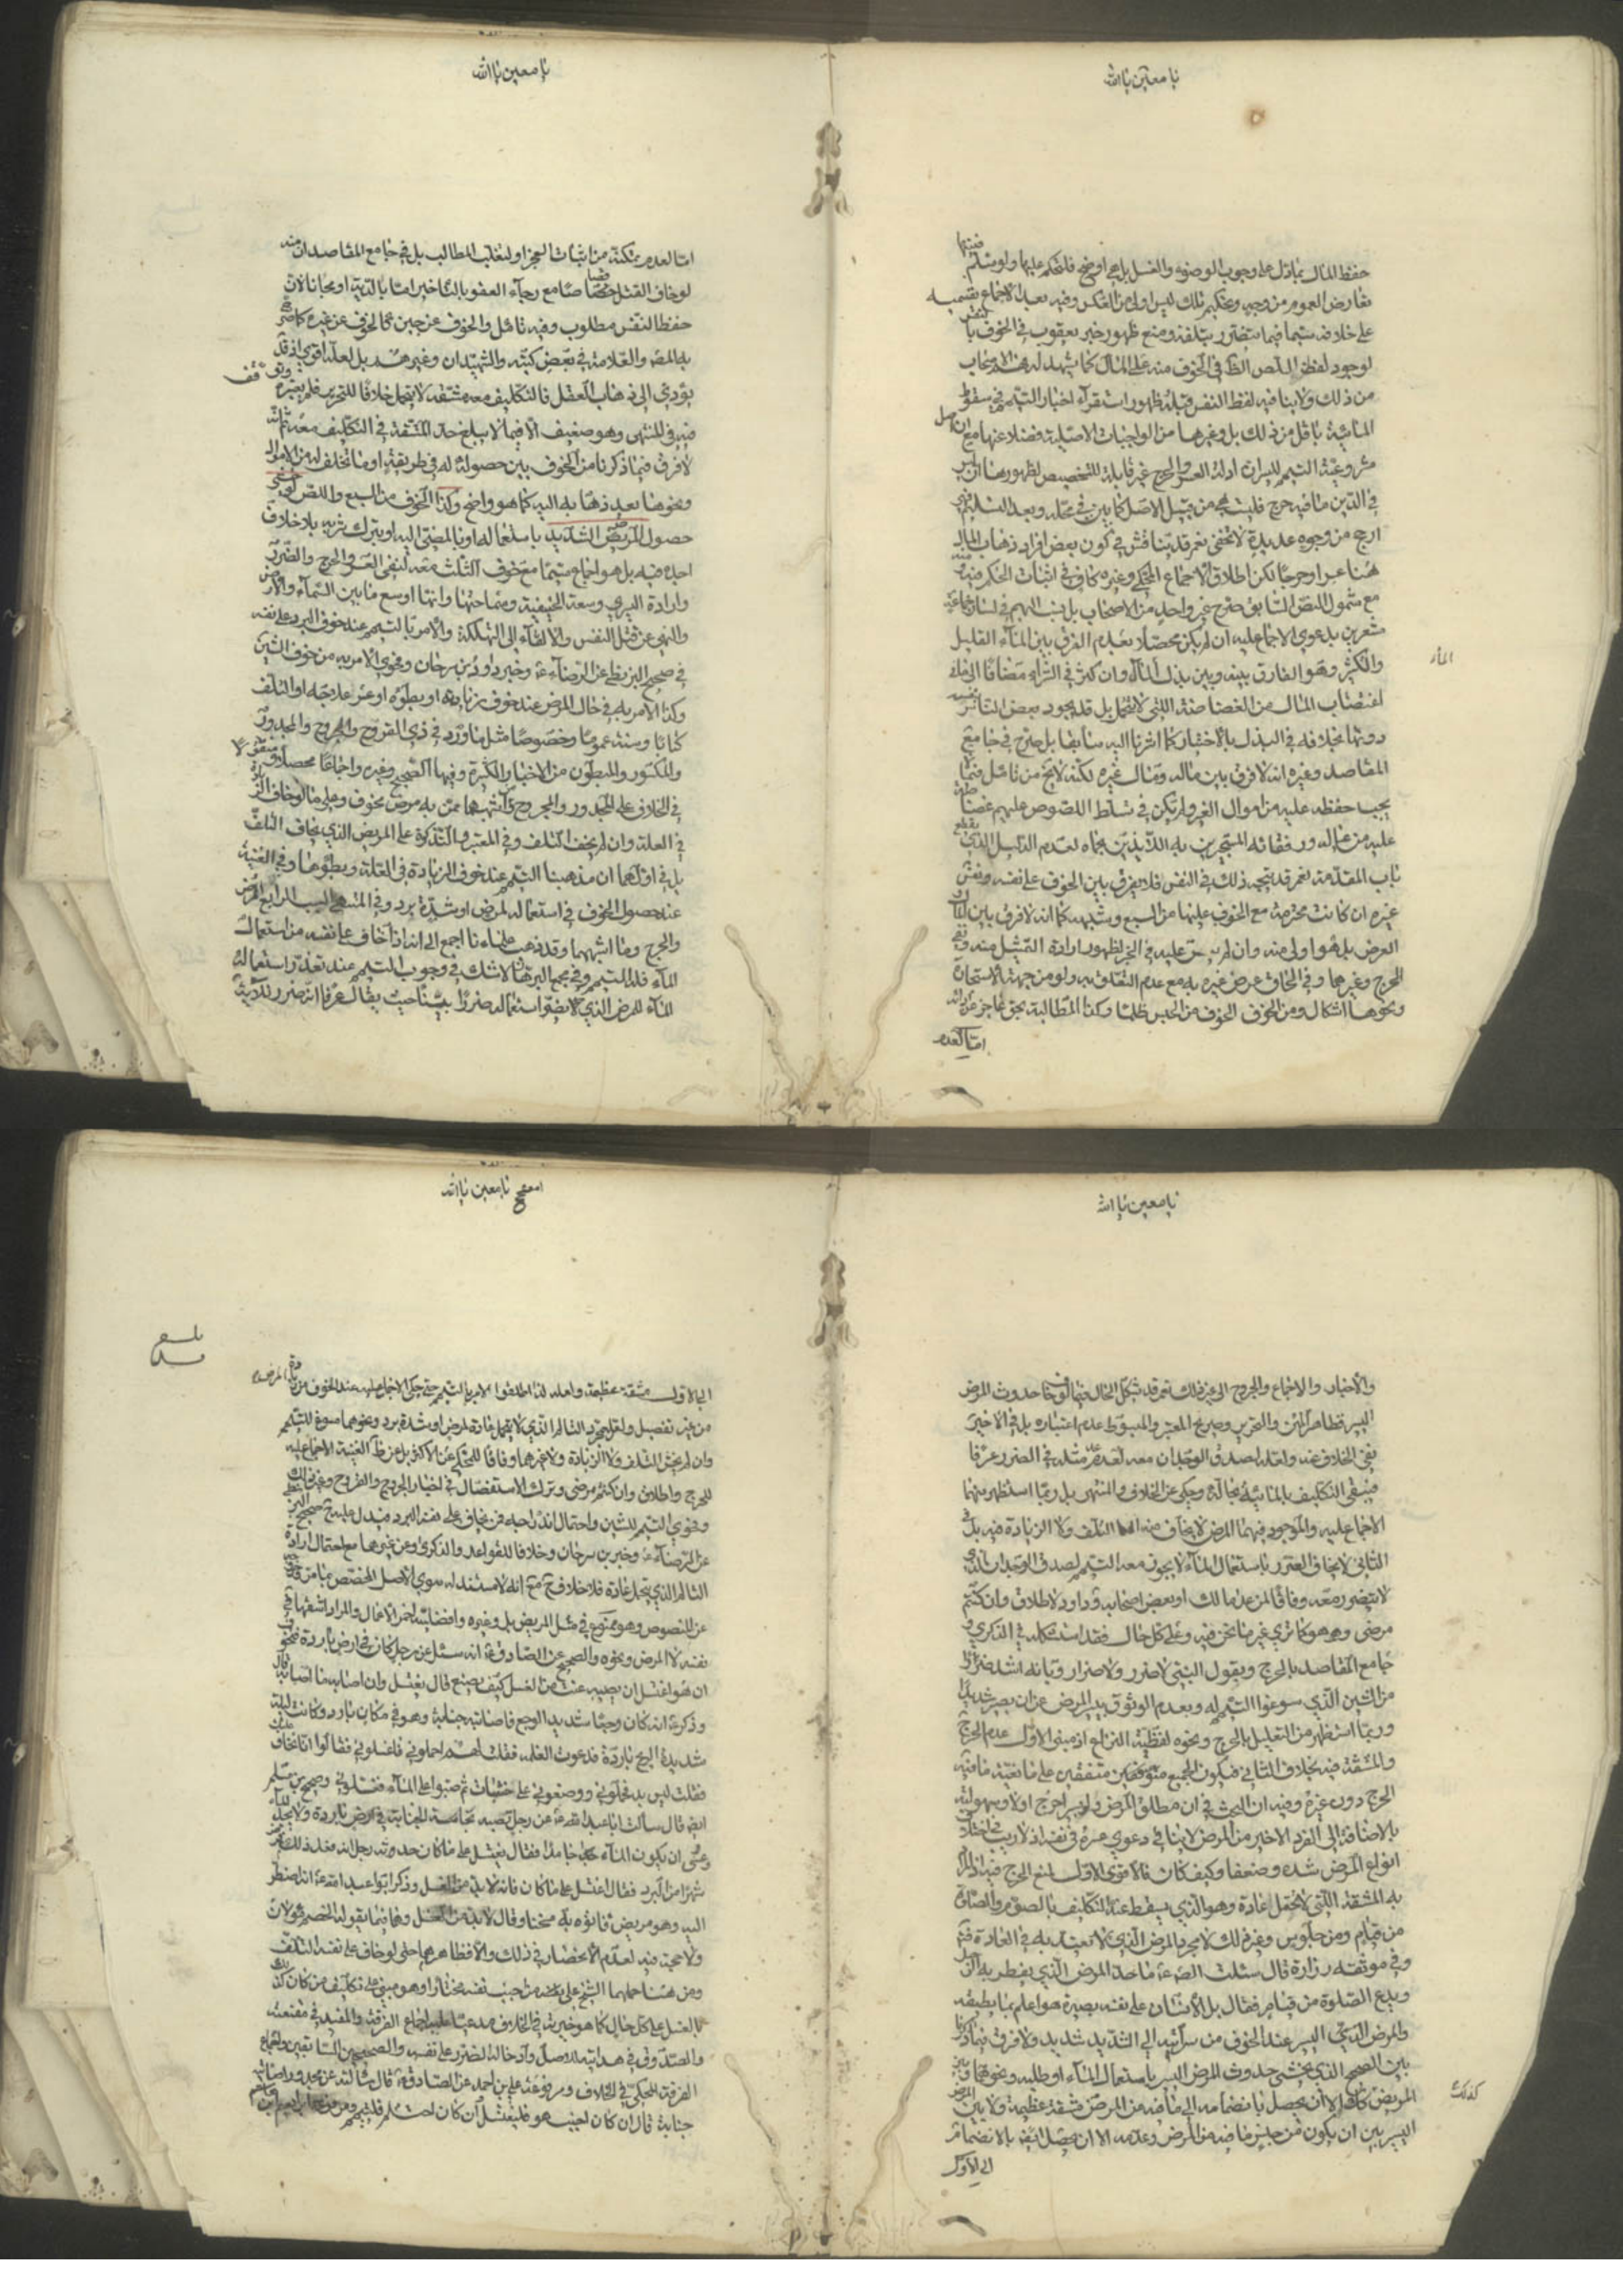 يا معين يا الله
حفظ المال بما دل على وجوب الوضوء والغسل بل هو أوضح فلتحكم عليها ولو سلم
تعارض العموم من وجه وتحكيم تلك ليس اولى من العكس وفيه بعد الاجماع بقسميه
على خلافه سيما فيما يتضرر بتلفه ومنع ظهور خبر يعقوب في الخوف بالنفس
لوجود لفظ اللص الظاهر في الخوف منه على المال كما يشهد له
من ذلك ولا ينافيه لفظ النفس قبله ظهور استقراء اخبار التيمم في سقوط
المائية باقل من ذلك بل وغيرها من الواجبات الاصلية فضلا عنها مع ان اصل
مشروعية التيمم لليسر ان ادلة العسر والحرج غير قابلة للتخصيص لظهورها ان ليس
في الدين ما فيه حرج فليست هي من قبيل الاصل كما بين في محله وبعد التسليم فهي
ارجح من وجوه عديدة لا تخفى نعم قد يناقش في كون بعض افراد ذهاب المال
هنا عسرا وحرجا لكن اطلاق الاجماع المحكي وغيره كاف في اثبات الحكم فيه
مع شمول اللص السابق صرح غير واحد من الاصحاب بل ينسب اليهم في لسان جماعة
مشعرين بدعوى الاجماع عليه ان لم يكن محصلا بعدم الفرق بين الماء القليل
والكثير وهو الفارق بينه وبين بذل المال وان كثر في الشراء مضافا الى ما في
اغتصاب المال من الغضاضة اللتي لا تتحمل بل قد يجود بعض الناس بنفسه
دونها بخلافه في البذل بالاختيار كما اشرنا اليه سابقا بل صرح في جامع
المقاصد وغيره انه لا فرق بين ماله ومال غيره لكنه لا يخ من تامل فيما
يجب حفظه عليه من اموال الغير ولم يكن في تسلط اللصوص عليهم غضاضة
عليه من عياله ورفقائه المستجيرين به اللائذين بجاه لعدم الدليل الذي يقطع
باب المقدمة نعم قد يتجه ذلك في النفس فلا يفرق بين الخوف على نفسه ونفس
غيره ان كانت محترمة مع الخوف عليها من السبع وشبهه كما انه لا فرق بين المال و
العرض بل هو اولى منه وان لم ينص عليه في الخبر لظهور ارادة التمثيل منه ونفي
الحرج وغيرهما وفي الحاق عرض غيره به مع عدم التعلق به ولو من جهة الاستجارة
ونحوها اشكال ومن الخوف الخوف من الحبس ظلما وكذا المطالبة بحق عاجز عن ادائه
اما لعدم
الماء
يا معين يا الله
اما لعدم تمكنه من اثبات العجز او لتغلب المطالب بل في جامع المقاصد ان منه
لو خاف القتل قصاصا مع رجاء العفو بالتاخير اما بالدية او مجانا لان
حفظ النفس مطلوب وفيه تامل والخوف عن جبن كالخوف عن غيره كما صرح
به المصنف والعلامة في بعض كتبه والشهيدان وغيرهم بل لعله اقوى اذ قد
يؤدي الى ذهاب العقل فالتكليف معه مشقة لا تتحمل خلافا للتحرير فلم يعتبره وتوقف
فيه في المنتهى وهو ضعيف الا فيما لا يبلغ حد المشقة في التكليف معه ثم انه
لا فرق فيما ذكرنا من الخوف بين حصوله له في طريقه او ما تخلف له من الاموال
ونحوها بعد ذهابه اليه كما هو واضح وكذا الخوف من السبع واللص لو خشي
حصول المرض الشديد باستعماله او بالمضي اليه او بترك شربه بلا خلاف
اجده فيه بل هو اجماع سيما مع خوف التلف معه لنفي العسر والحرج والضرر
وارادة اليسر وسعة الحنيفية وسماحتها وانها اوسع مما بين السماء والارض
والنهي عن قتل النفس والالقاء الى التهلكة والامر بالتيمم عند خوف البرد على نفسه
في صحيح البزنطي عن الرضا ع وخبر داود بن سرحان وفحوى الامر به من خوف الشين
وكذا الامر به في حال المرض عند خوف زيادته او بطؤه او عسر علاجه او التلف
كتابا وسنة عموما وخصوصا مثل ما ورد في ذي القروح والجروح والمجدور
والمكسور والمبطون من الاخبار الكثيرة وفيها الصحيح وغيره واجماعا محصلا ومنقولا
في الخلاف على المجدور والمجروح ومن اشبههما ممن به مرض مخوف وعلى ما لو خاف الزيادة
في العلة وان لم يخف التلف وفي المعتبر والتذكرة على المريض الذي يخاف التلف
بل في اولهما ان مذهبنا التيمم عند خوف الزيادة في العلة وبطؤها وفي الغنية
عند حصول الخوف في استعماله لمرض او شدة برد وفي المنتهى السبب الرابع المرض
والجرح وما اشبههما وقد ذهب علماءنا اجمع الى انه اذا خاف على نفسه من استعمال
الماء فله التيمم وفي مجمع البرهان لا شك في وجوب التيمم عند تعذر استعمال
الماء للمرض الذي لا يضر استعماله ضررا بينا حيث يقال عرفا انه ضرر للادلة
يا معين يا الله
والاخبار والاجماع والحرج الى غير ذلك نعم قد يشكل الحال فيما لو خاف حدوث المرض
اليسير فظاهر المتن والتحرير وصريح المعتبر والمبسوط عدم اعتباره بل في الاخير
نفي الخلاف عنه ولعله لصدق الوجدان معه لعدم عد مثله في الضرر عرفا
فيبقى التكليف بالمائية بحاله وحكي عن الخلاف والمنتهى بل ربما استظهر منهما
الاجماع عليه والموجود فيهما المرض لا يخاف منه التلف ولا الزيادة فيه بل في
الثاني لا يخاف الضرر باستعمال الماء لا يجوز معه التيمم لصدق الوجدان الذي
لا يتضرر معه وفاقا لمن عدا مالك او بعض اصحابه وداود لاطلاق وان كنتم
مرضى وهو كما ترى غير ما نحن فيه وعلى كل حال فقد استشكله في الذكرى و
جامع المقاصد بالحرج وبقول النبي لا ضرر ولا ضرار وبانه اشد ضررا
من الشين الذي سوغوا التيمم له وبعدم الوثوق بيسير المرض عن ان يصير شديدا
وربما استظهر من التعليل بالحرج ونحوه لفظية النزاع اذ مبنى الاول عدم الحرج
والمشقة فيه بخلاف الثاني فيكون الجميع متفقين على ما فيه
الحرج دون غيره وفيه ان البحث في ان مطلق المرض ولو يسيرا حرج اولا وسهولته
بالاضافة الى الفرد الاخير من المرض لا ينافي دعوى عسره في نفسه اذ لا ريب في اختلاف
انواع المرض شدة وضعفا وكيف كان فالاقوى الاول لمنع الحرج فيه اذ المراد
به المشقة اللتي لا تتحمل عادة وهو الذي يسقط عنده التكليف بالصوم والصلاة
من قيام ومن جلوس وغير ذلك لا مجرد المرض الذي لا يعتد به في العادة
وفي موثقة زرارة قال سئلت الصادق ع ما حد المرض الذي يفطر به الرجل
ويدع الصلوة من قيام فقال بل الانسان على نفسه بصيرة هو اعلم بما يطيقه
والمرض اليسير عند الخوف من سرايته الى الشديد شديد ولا فرق فيما ذكرنا
بين الصحيح الذي يخشى حدوث المرض اليسير باستعمال الماء او طلبه ونحوهما وبين
المريض كذلك الا ان يحصل بانضمامه الى ما فيه من المرض مشقة عظيمة ولا بين المرض
اليسير بين ان يكون من جنس ما فيه من المرض وعدمه الا ان يحصل بالانضمام
الى الاول
كذلك
يا معين يا الله
الى الاول مشقة عظيمة ولعله لذا اطلقوا الامر بالتيمم حتى حكي الاجماع عليه عند الخوف من زيادة المرض
من غير تفصيل ولعل مجرد التالم الذي لا يتحمل عادة لمرض او شدة برد ونحوهما مسوغ للتيمم
وان لم يخش التلف ولا الزيادة ولا غيرهما وفاقا للمحكي عن الاكثر بل عن ظاهر الغنية الاجماع عليه
للحرج واطلاق وان كنتم مرضى وترك الاستفصال في اخبار الجروح والقروح وغير ذلك
وفحوى التيمم للشين واحتمال اندراجه فيمن يخاف على نفسه البرد فيدل عليه صحيح البزنطي
عن الرضا ع وخبر ابن سرحان وخلافا للقواعد والذكرى وعن غيرها مع احتمال ارادة
التالم الذي يتحمل عادة فلا خلاف ح مع انه لا مستند له سوى الاصل المخصص بما مر
عن النصوص وهو ممنوع في مثل المريض بل وغيره وافضلية احمز الاعمال والمراد اشقها في
نفسه لا المرض ونحوه والصحيح عن الصادق ع انه سئل عن رجل كان في ارض باردة فتخوف
ان هو اغتسل ان يصيبه عنت من الغسل كيف يصنع قال يغتسل وان اصابه ما اصابه قال
وذكر انه كان وجعا شديد الوجع فاصابته جنابة وهو في مكان بارد وكانت ليلة
شديدة الريح باردة فدعوت الغلمة فقلت لهم احملوني فاغسلوني فقالوا انا نخاف عليك
فقلت ليس بد فحملوني ووضعوني على خشبات ثم صبوا على الماء فغسلوني وصحيح بن مسلم
ايضا قال سألت ابا عبد الله ع عن رجل تصيبه الجنابة في ارض باردة ولا يجد الماء
وعسى ان يكون الماء جامدا فقال يغتسل على ما كان حدثه رجل انه فعل ذلك فمرض
شهرا من البرد فقال اغتسل على ما كان فانه لا بد من الغسل وذكر ابو عبد الله ع انه اضطر
اليه وهو مريض فاتوه به مسخنا وقال لا بد من الغسل وهما فيما يقوله الخصم
ولا حجة فيه لعدم الانحصار في ذلك والا فظاهرهما حتى لو خاف على نفسه التلف
ومن هنا حملهما الشيخ على تعمد من جنب نفسه مختارا وهو مبني على تكليف من كان كذلك
بالغسل على كل حال كما هو خيرته في الخلاف مدعيا عليه اجماع الفرقة والمفيد في مقنعته
والصدوق في هدايته للاصل وادخاله الضرر على نفسه والصحيحين السابقين واجماع
الفرقة المحكي في الخلاف ومرفوعة علي بن احمد عن الصادق ع قال سالته عن مجدور اصابته
جنابة قال ان كان اجنب هو فليغتسل وان كان احتلم فليتيمم ومرفوعة ابراهيم بن هاشم